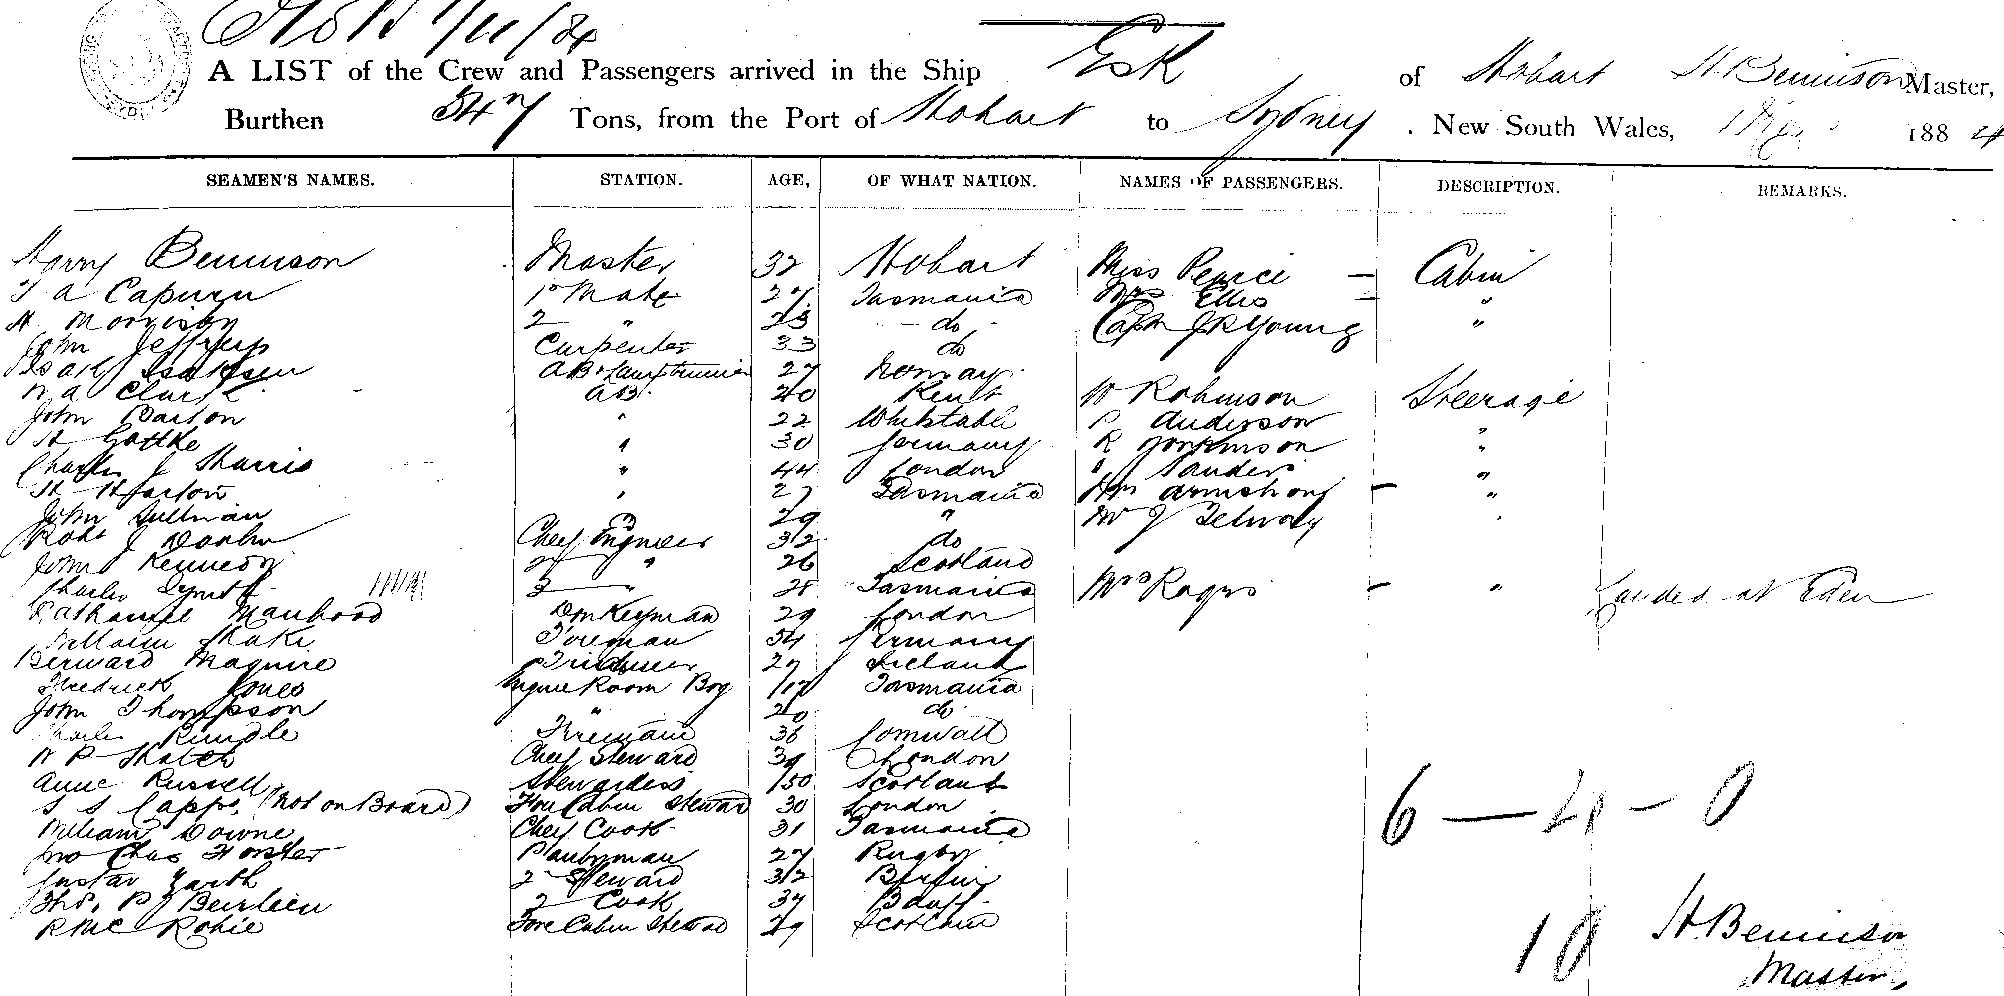 A LIST of the Crew and Passengers arrived in the Ship Esk of Hobart H. Bennison Master,
Burthen 547 Tons, from the Port of Hobart to Sydney . New South Wales, 1884
SEAMEN'S NAMES. STATION. AGE, OF WHAT NATION. NAMES OF PASSENGERS. DESCRIPTION. REMARKS.
Harry Bennison Master 32 Hobart Miss Pearce — Cabin
T a Capurn 1st Mate 27 Tasmania Mrs Ellis — "
H Morrisby 2 " 23 do Captn J R Young "
John Jeffreys Carpenter 33 do
Isaksen AB & Lamptrimmer 27 Norway
W a Clark AB. 40 Kent W Robinson Steerage
John Barton " 22 Whitstable P Anderson "
H Gothke " 30 Germany R "
Charles J Harris " 44 London Sanders "
H Harton " 27 Tasmania Wm Armstrong — "
John Sullivan " 29 " Mr J Selway "
Robt J Chief Engineer 32 do
John Kennedy 2 " 26 Scotland
Charles 3 " 28 Tasmania Mrs Rogers — " Landed at Eden
Nathaniel Manhood Donkeyman 29 London
William Hake Foreman 54 Germany
Bernard Maguire 27 Ireland
Fredrick Jones Engine Room Boy 17 Tasmania
John Thompson " 20 do
Charles Rundle Fireman 36 Cornwall
W P Hatch Chief Steward 39 London
Anne Russell Stewardess 50 Scotland
S S Capps, (Not on Board) Fore Cabin Steward 30 London
William Downe Chief Cook 31 Tasmania
Jno Chas Forster Pantryman 27 Rugby
Gustav Barth 2 Steward 32 Berlin
P J Beirlein 2 Cook 37
R McRobie Fore Cabin Steward 29 Scotland
6 — 4 — 0
10
H. Bennison
Master,